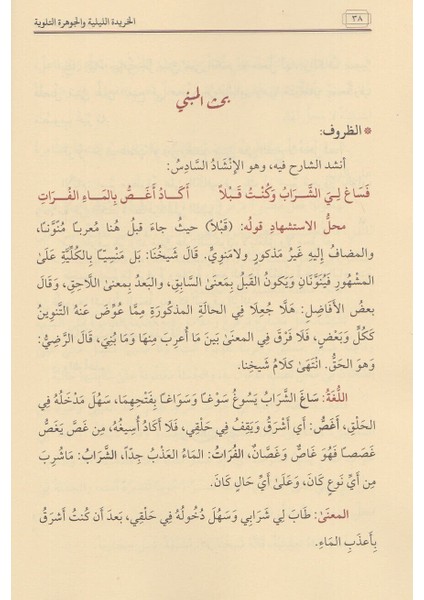 ٣٨
الخريدة الليلية والجوهرة التلوية
بحث المبني
* الظروف:
أنشد الشارح فيه، وهو الإنْشَادُ السَّادِسُ:
فَسَاغَ لِيَ الشَّرَابُ وَكُنْتُ قَبْلاً أَكَادُ أَغَصُّ بِالمَاءِ الفُرَاتِ
محلُّ الاستشهادِ قولُه: (قَبْلاً) حيثُ جاءَ قبلُ هُنا مُعربًا مُنَوَّنًا،
والمضافُ إليهِ غَيرُ مَذكورٍ ولامَنوِيٍّ. قَالَ شَيخُنَا: بَل مَنْسِيًّا بِالكُلِّيَّةِ عَلَىٰ
المَشْهُورِ فَيُنَوَّنَانِ وَيَكُونُ القَبلُ بِمَعنَى السَّابِقِ، والبَعدُ بِمعنى اللَّاحِقِ، وَقَالَ
بعضُ الأَفَاضِلِ: هَلَّا جُعِلَا فِي الحَالَةِ المَذكُورَةِ مِمَّا عُوِّضَ عَنهُ التَّنْوِينَ
كَكُلٍّ وَبَعْضٍ، فَلَا فَرْقَ فِي المعنَىٰ بَينَ مَا أُعرِبَ مِنهَا وَمَا بُنِيَ، قَالَ الرَّضِيُّ:
وَهوَ الحَقُّ. انْتَهَىٰ كَلَامُ شَيخِنَا.
اللُّغَةُ: سَاغَ الشَّرَابُ يَسُوغُ سَوْغًا وَسَوَاغًا بِفَتْحِهِمَا، سَهُلَ مَدْخَلُهُ فِي
الحَلْقِ، أَغَصُّ: أَي أَشْرَقُ وَيَقِفُ فِي حَلْقِي، فَلَا أَكَادُ أُسِيغُهُ، مِن غَصَّ يَغَصُّ
غَصَصًا فَهُوَ غَاصٌّ وَغَصَّانٌ، الفُرَاتُ: المَاءُ العَذْبُ جِدّاً، الشَّرَابُ: مَاشُرِبَ
مِن أَيِّ نَوعٍ كَانَ، وَعَلَى أَيِّ حَالٍ كَانَ.
المعنَىٰ: طَابَ لِي شَرَابِي وَسَهُلَ دُخُولُهُ فِي حَلْقِي، بَعدَ أَن كُنتُ أَشرَقُ
بِأَعذَبِ المَاءِ.